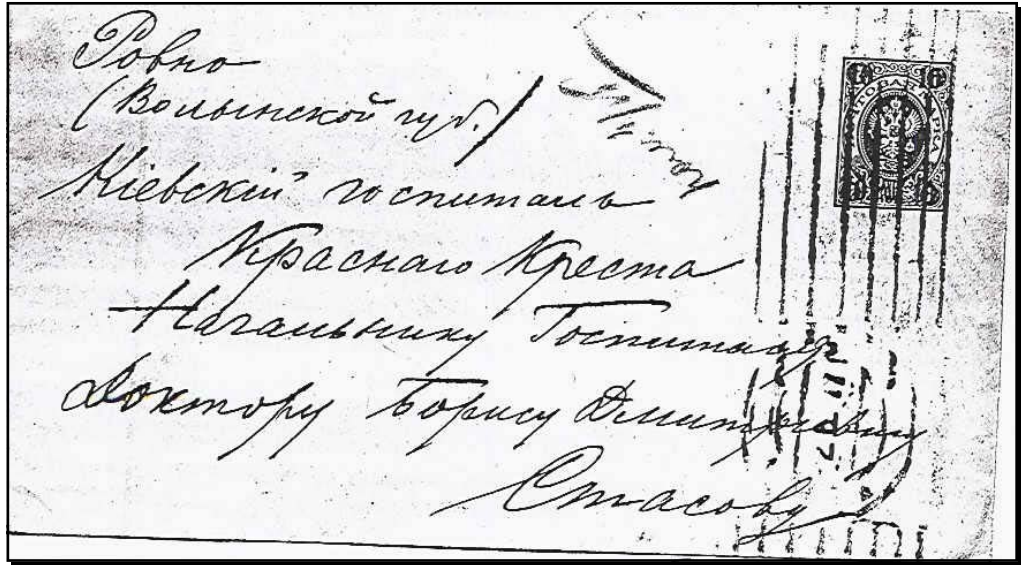 Ровно
(Волынской губ.)
Кіевскій госпиталь
Краснаго Креста
Начальнику Госпиталя
Доктору Борису Дмитріевичу
Стасову